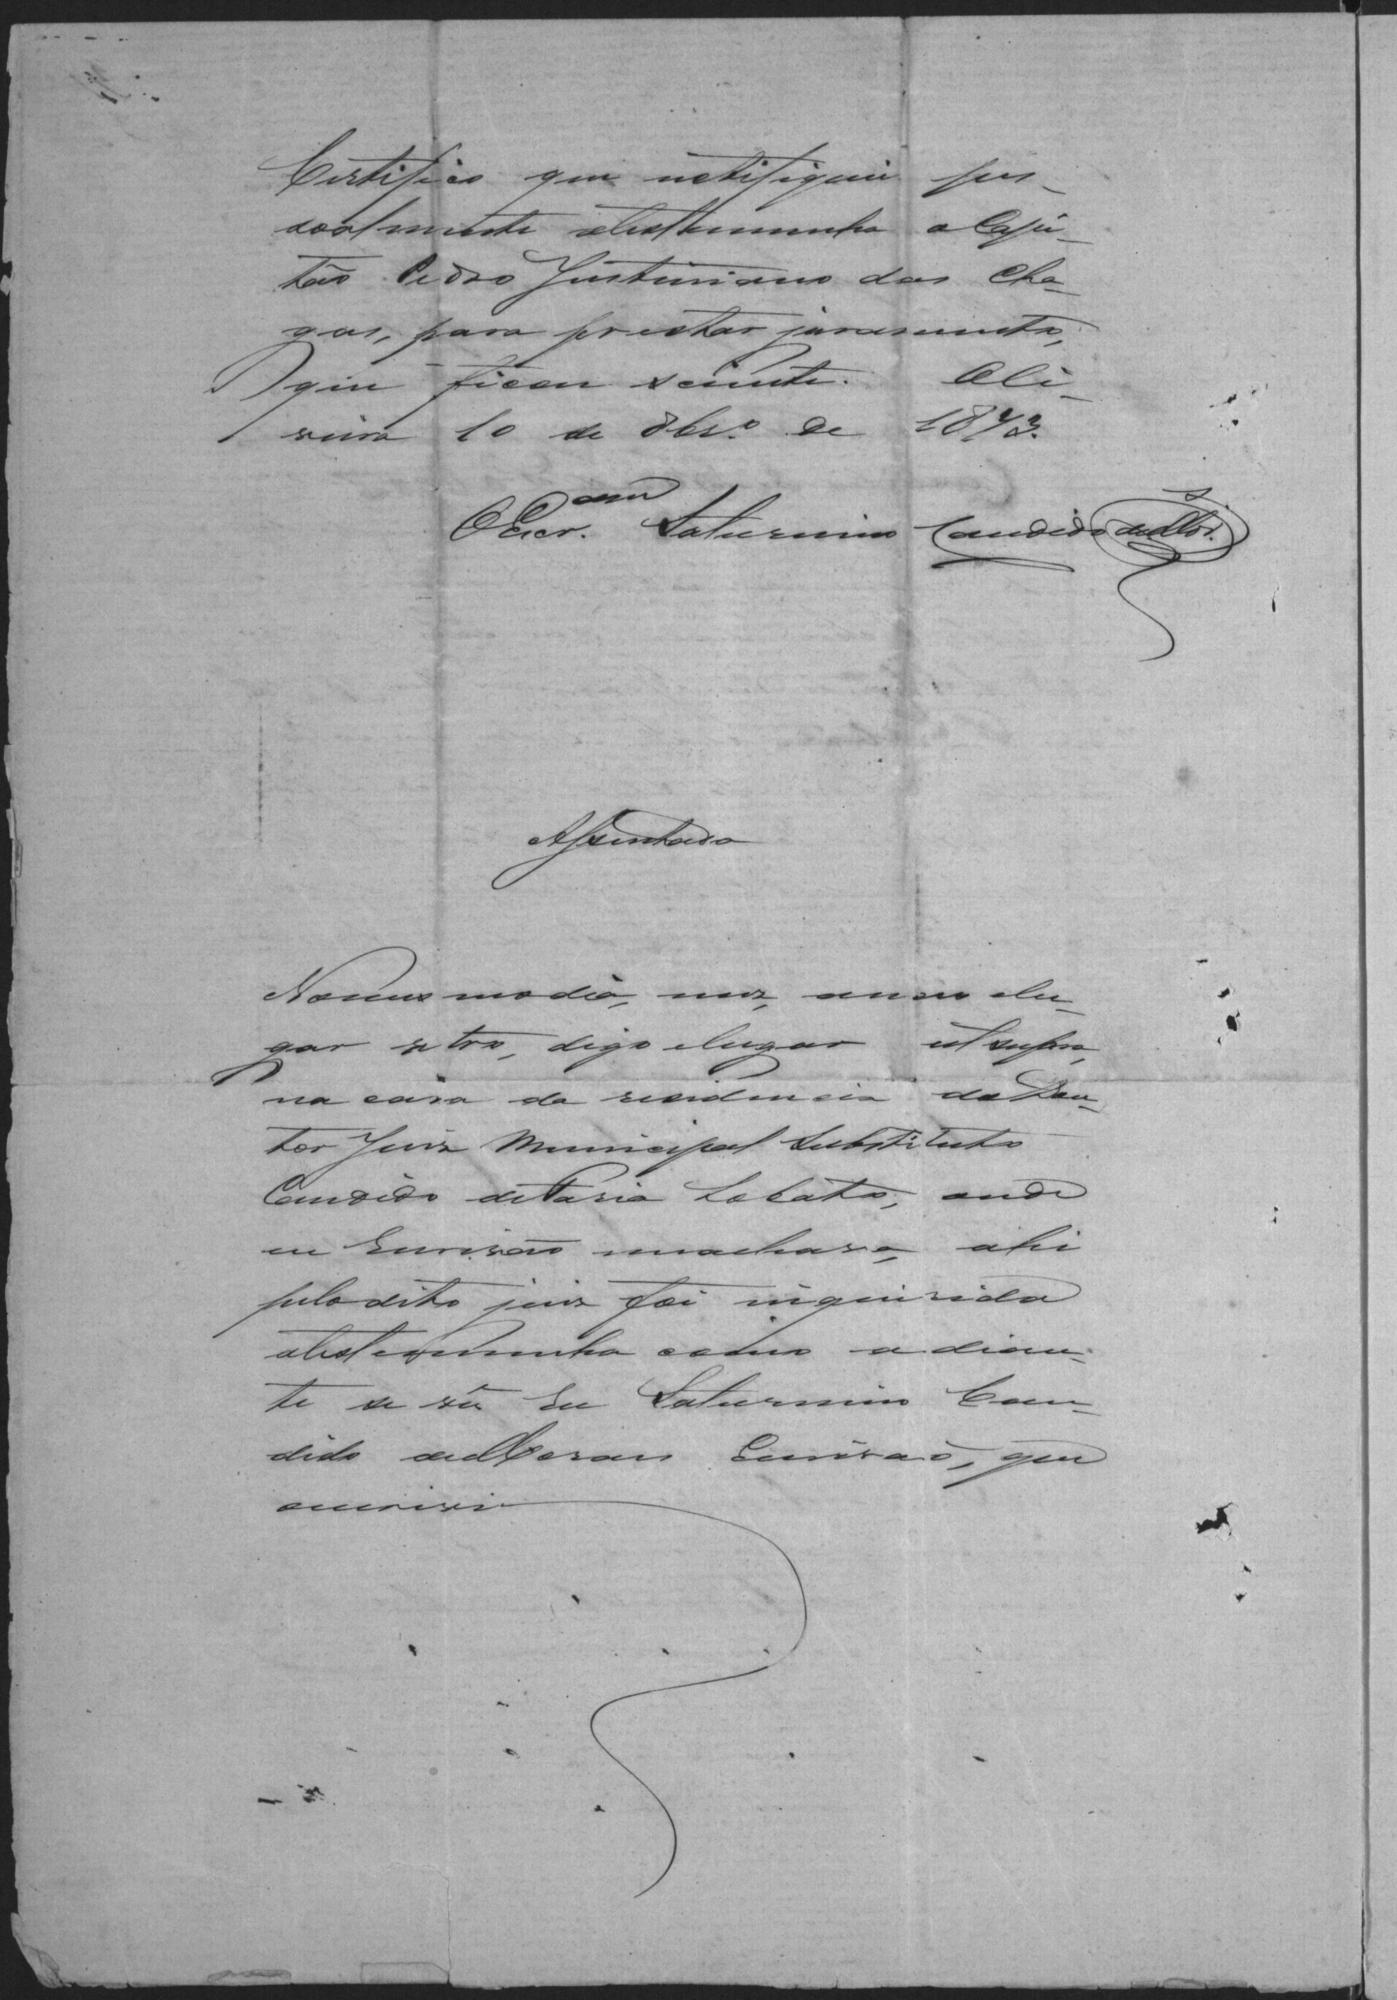 Certifico que notifiquei pes-
soalmente atestemunha o Capi-
tão Pedro Justiniano das Cha-
gas, para prestar juramento,
que ficou sciente. Oli-
veira 10 de 8br.º de 1873.
O Escr.am Saturnino Candido
Assentada
No mesmo dia, mez, anno elu-
gar retro, digo elugar ut supra,
na casa da residencia do Dou-
tor Juiz Municipal Substituto
Candido de Faria Lobato, onde
eu Escrivão me achava, ahi
pelo dito juiz foi inquirida
atestemunha como a dian-
te se vê Eu Saturnino Can-
dido de Moraes Escrivão, que
escrevi